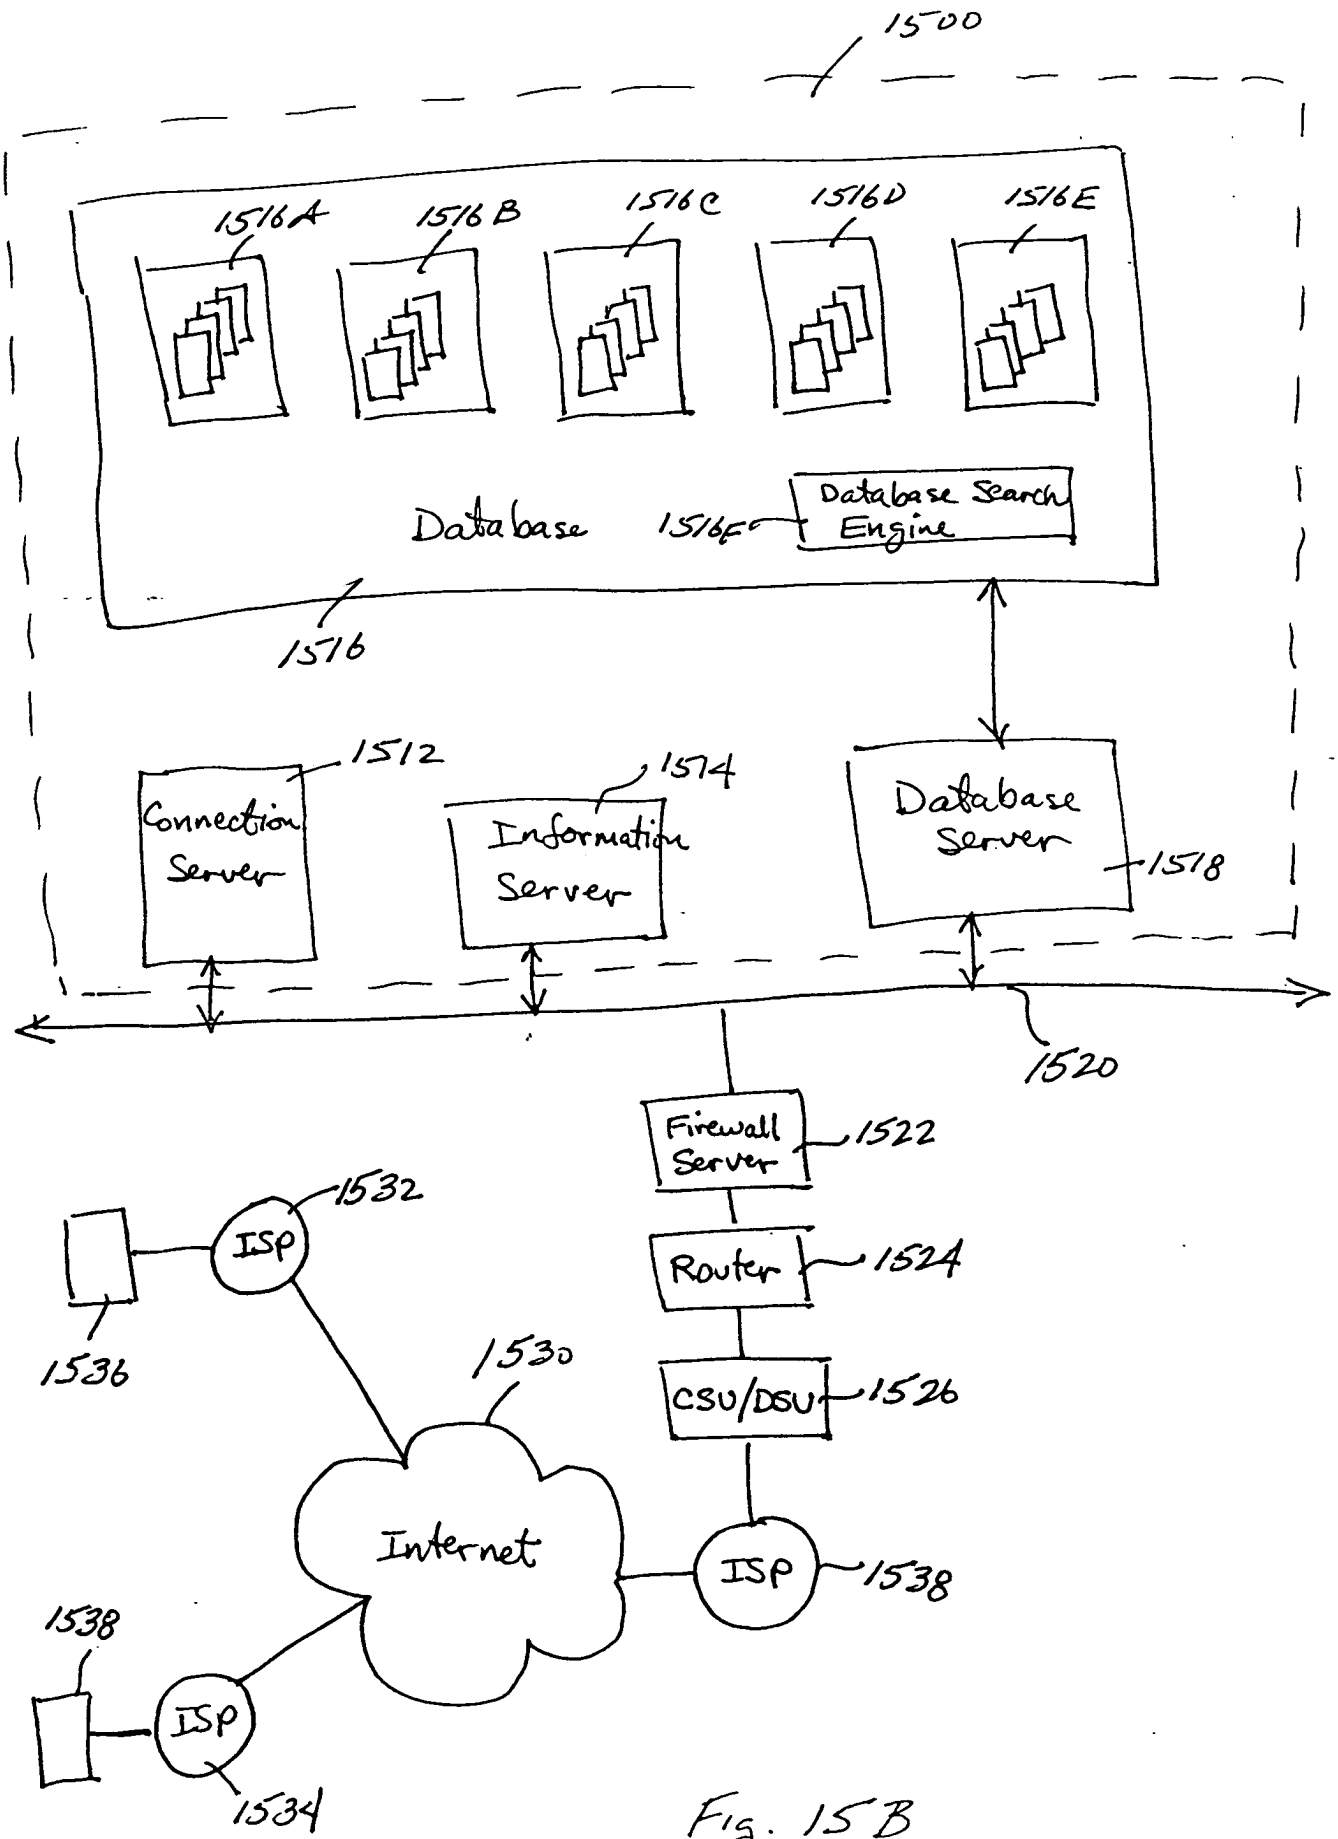 1500
1516A 1516B 1516C 1516D 1516E
Database Search
Engine
1516F
Database
1516
1512
Connection
Server
1514
Information
Server
Database
Server
1518
1520
Firewall
Server
1522
1532
ISP
1536
Router
1524
1530
CSU/DSU
1526
Internet
ISP
1538
1538
ISP
1534
Fig. 15B